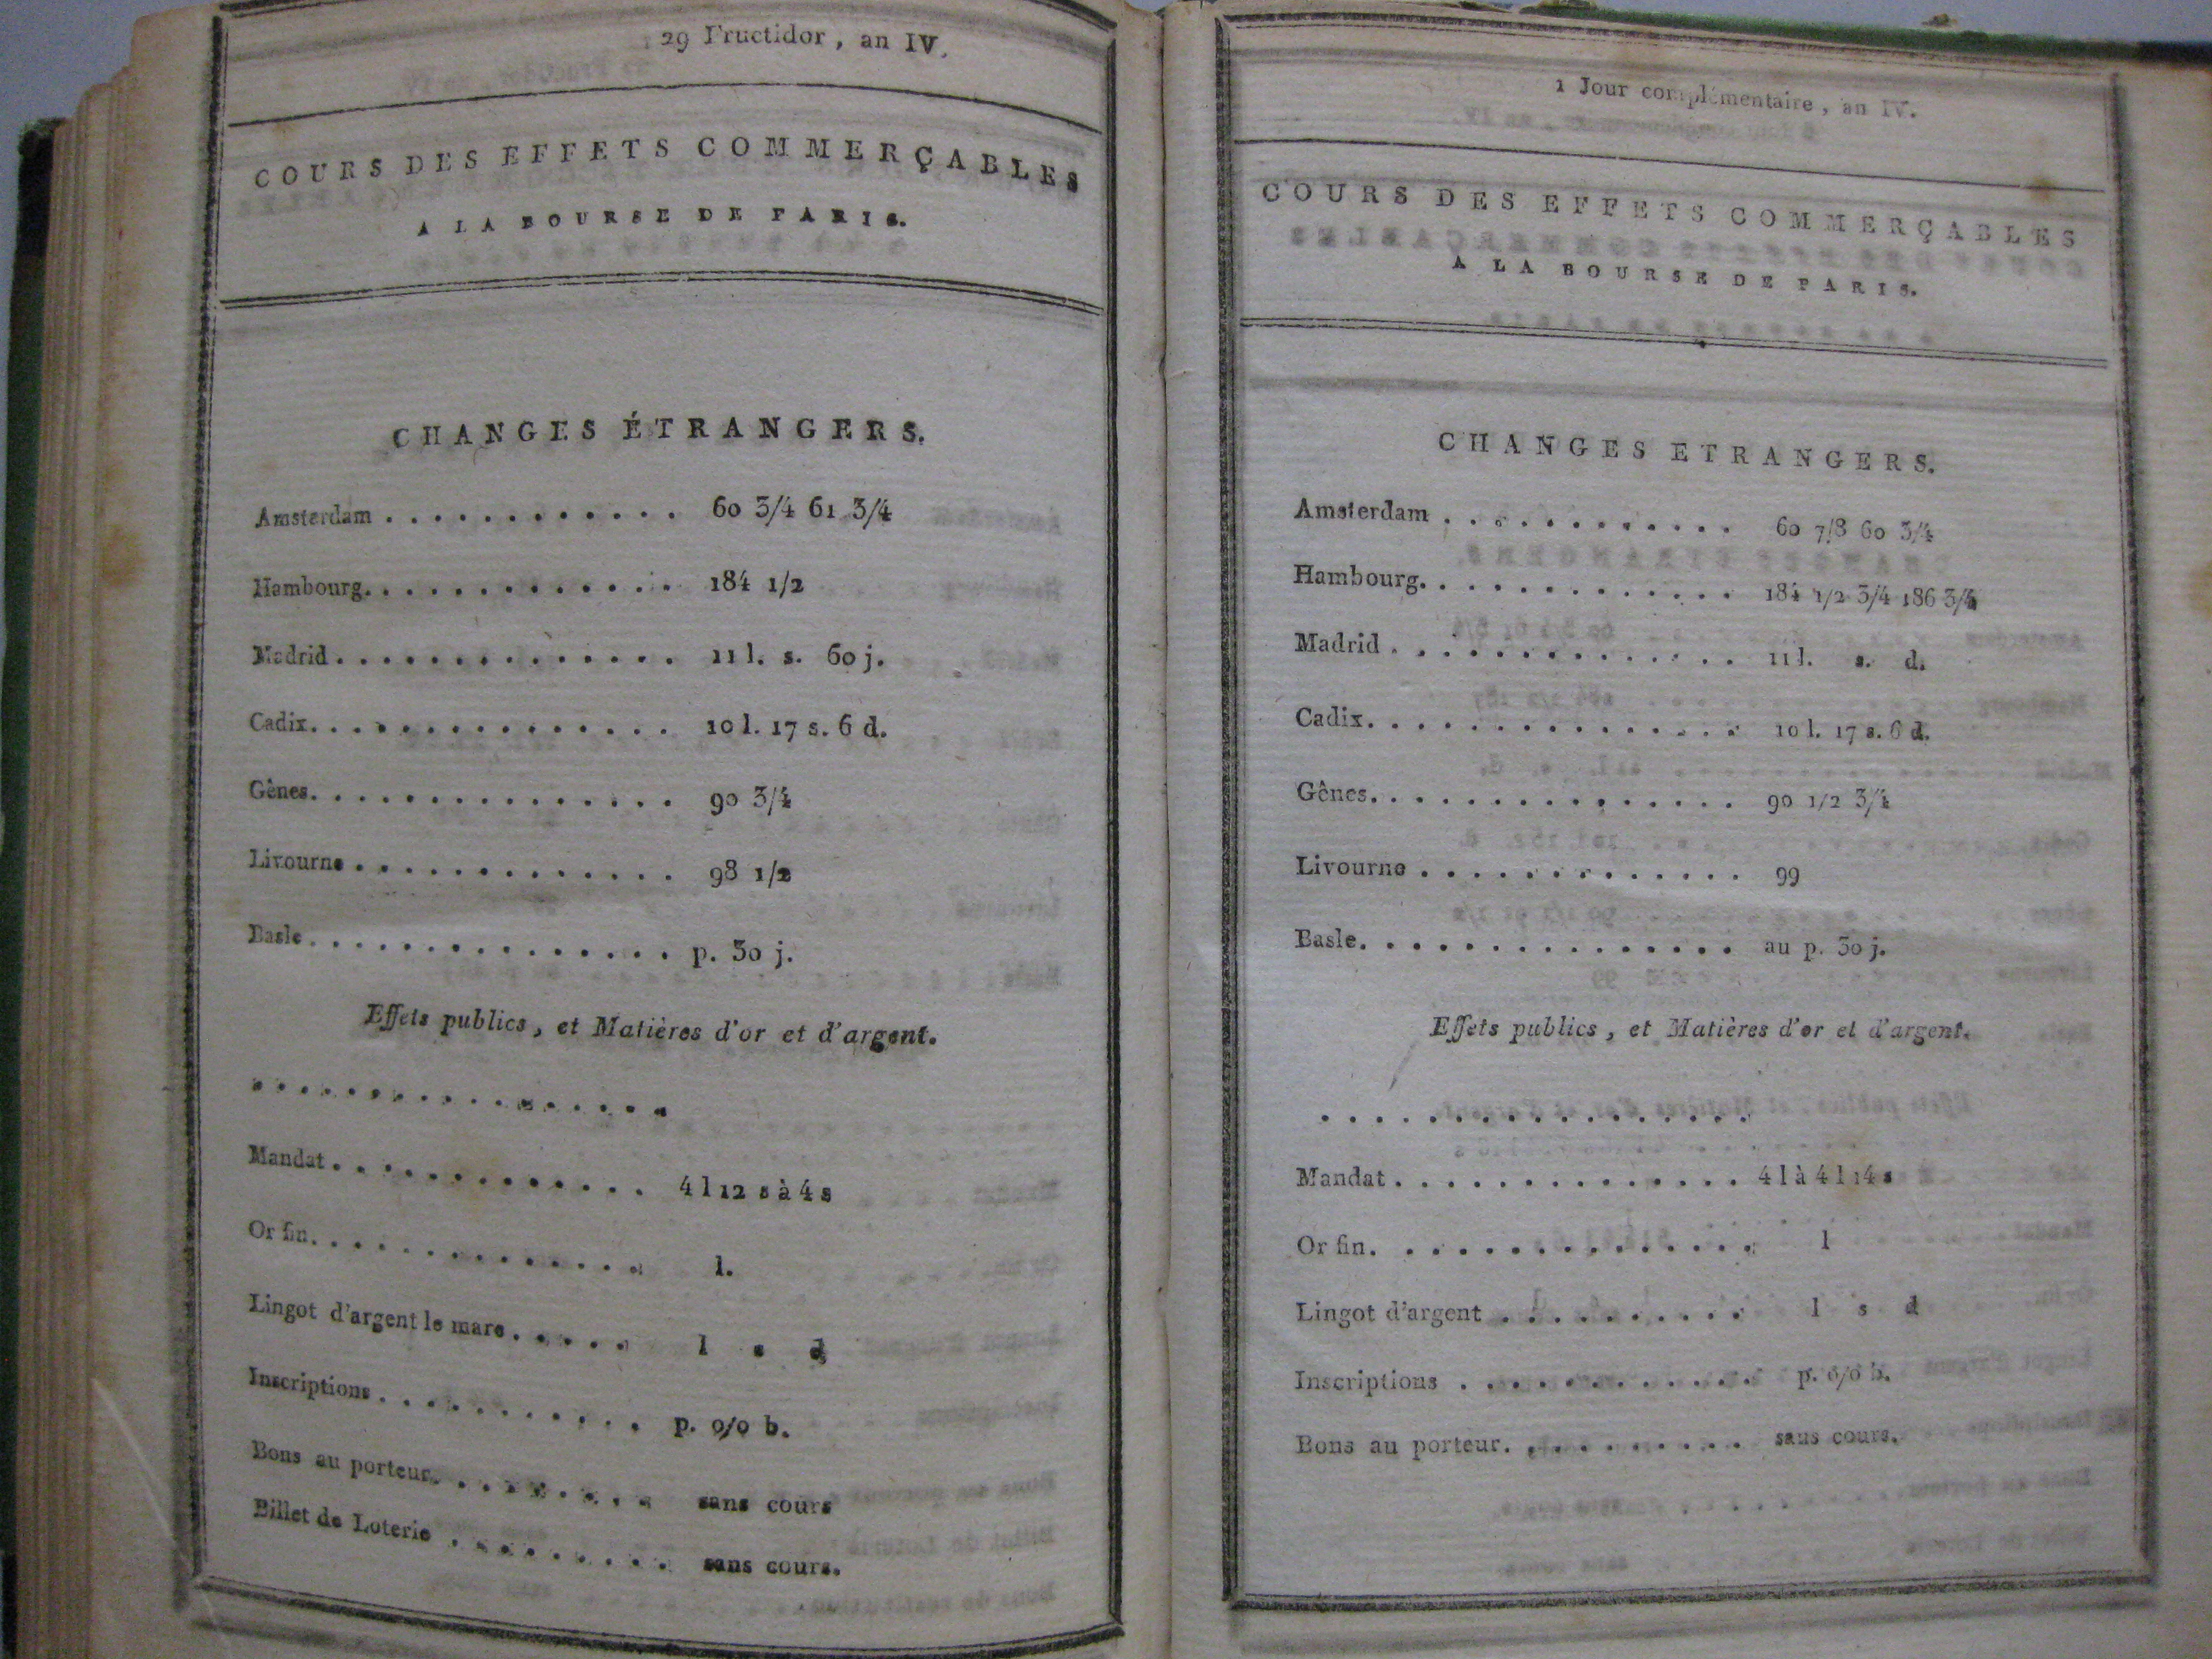 29 Fructidor, an IV.
COURS DES EFFETS COMMERÇABLES
A LA BOURSE DE PARIS.
CHANGES ÉTRANGERS.
Amsterdam . . . . . . . . . . . . 60 3/4 61 3/4
Hambourg. . . . . . . . . . . . . 184 1/2
Madrid . . . . . . . . . . . . . . 11 l. s. 60 j.
Cadix. . . . . . . . . . . . . . . 10 l. 17 s. 6 d.
Gênes. . . . . . . . . . . . . . . 90 3/4
Livourne . . . . . . . . . . . . . 98 1/2
Basle . . . . . . . . . . . . . . . p. 30 j.
Effets publics, et Matières d'or et d'argent.
. . . . . . . . . . . . . . . . . .
Mandat . . . . . . . . . . . . . 4 l 12 s à 4 s
Or fin. . . . . . . . . . . . . . l.
Lingot d'argent le marc . . . . . l s d
Inscriptions . . . . . . . . . . . p. 0/0 b.
Bons au porteur. . . . . . . . . sans cours
Billet de Loterie . . . . . . . . . sans cours.
1 Jour complémentaire, an IV.
COURS DES EFFETS COMMERÇABLES
A LA BOURSE DE PARIS.
CHANGES ETRANGERS.
Amsterdam . . . . . . . . . . . . 60 7/8 60 3/4
Hambourg. . . . . . . . . . . . . 184 1/2 3/4 186 3/4
Madrid . . . . . . . . . . . . . . 11 l. s. d.
Cadix. . . . . . . . . . . . . . . 10 l. 17 s. 6 d.
Gênes. . . . . . . . . . . . . . . 90 1/2 3/4
Livourne . . . . . . . . . . . . . 99
Basle. . . . . . . . . . . . . . . au p. 30 j.
Effets publics, et Matières d'or et d'argent.
. . . . . . . . . . . . . . . . .
Mandat . . . . . . . . . . . . . . 4 l à 4 l 14 s
Or fin. . . . . . . . . . . . . . . l
Lingot d'argent . . . . . . . . . . l s d
Inscriptions . . . . . . . . . . . . p. 0/0 b.
Bons au porteur. . . . . . . . . . sans cours.